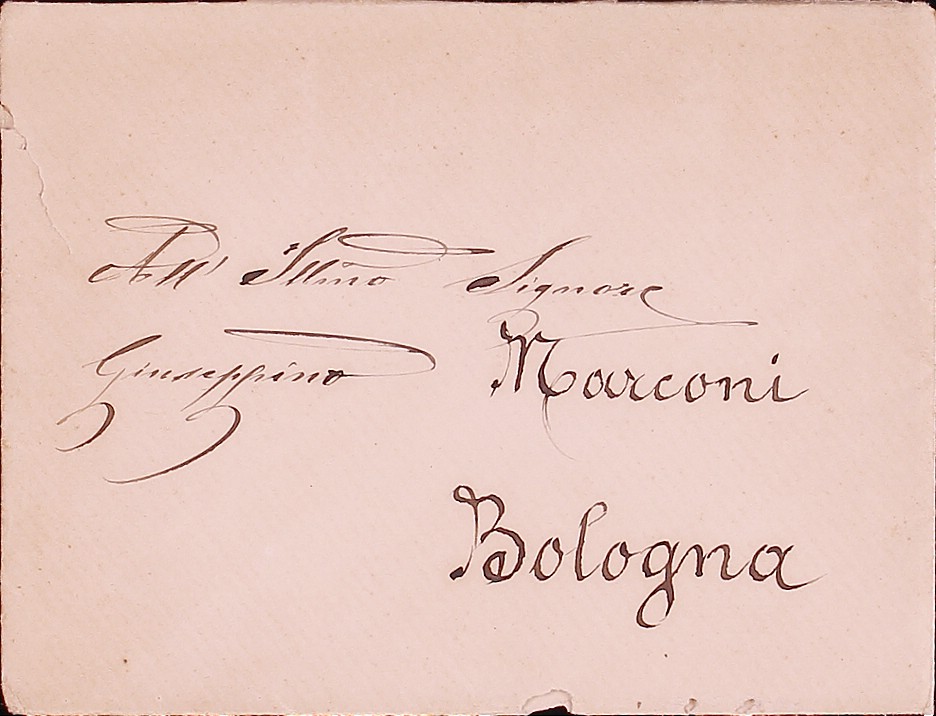 All' Illmo Signore
Giuseppino Marconi
Bologna